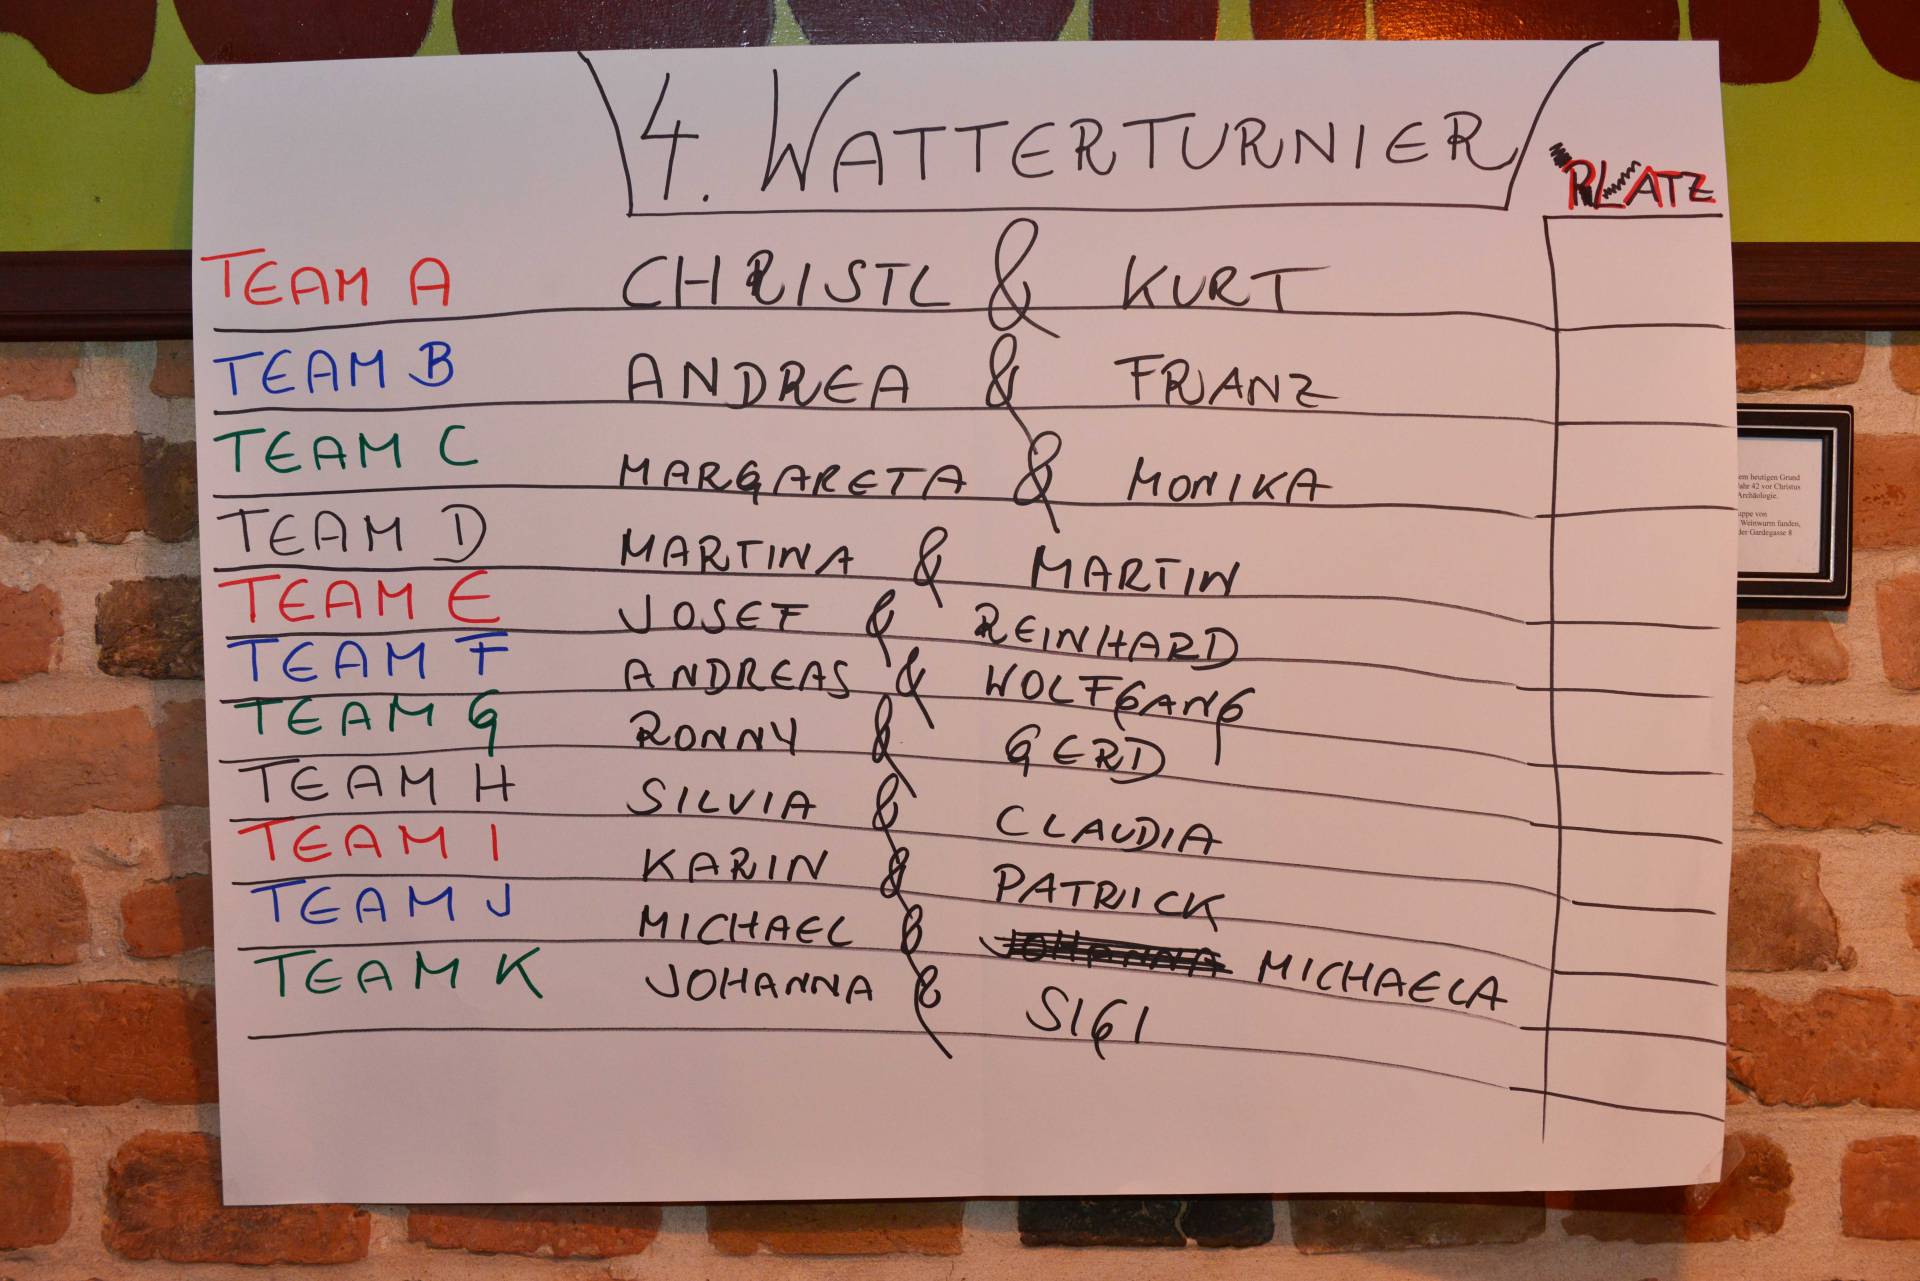 4. WATTERTURNIER
PLATZ
TEAM A CHRISTL & KURT
TEAM B ANDREA & FRANZ
TEAM C MARGARETA & MONIKA
TEAM D MARTINA & MARTIN
TEAM E JOSEF & REINHARD
TEAM F ANDREAS & WOLFGANG
TEAM G RONNY & GERD
TEAM H SILVIA & CLAUDIA
TEAM I KARIN & PATRICK
TEAM J MICHAEL & JOHANNA MICHAELA
TEAM K JOHANNA & SIGI
em heutigen Grund
Jahr 42 vor Christus
Archäologie.
uppe von
Weinwurm fanden,
der Gardegasse 8